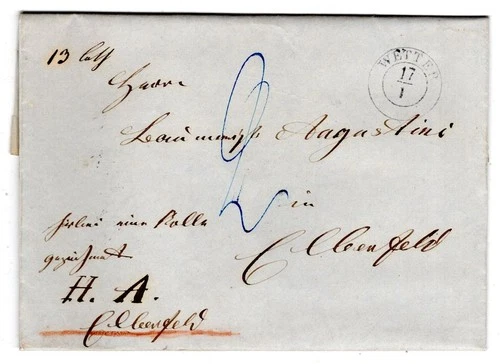 13 Loth
WETTER
17
1
Herrn
Augustini
2
in
Elberfeld
hierbei eine Rolle
gezeichnet
H. A.
Elberfeld